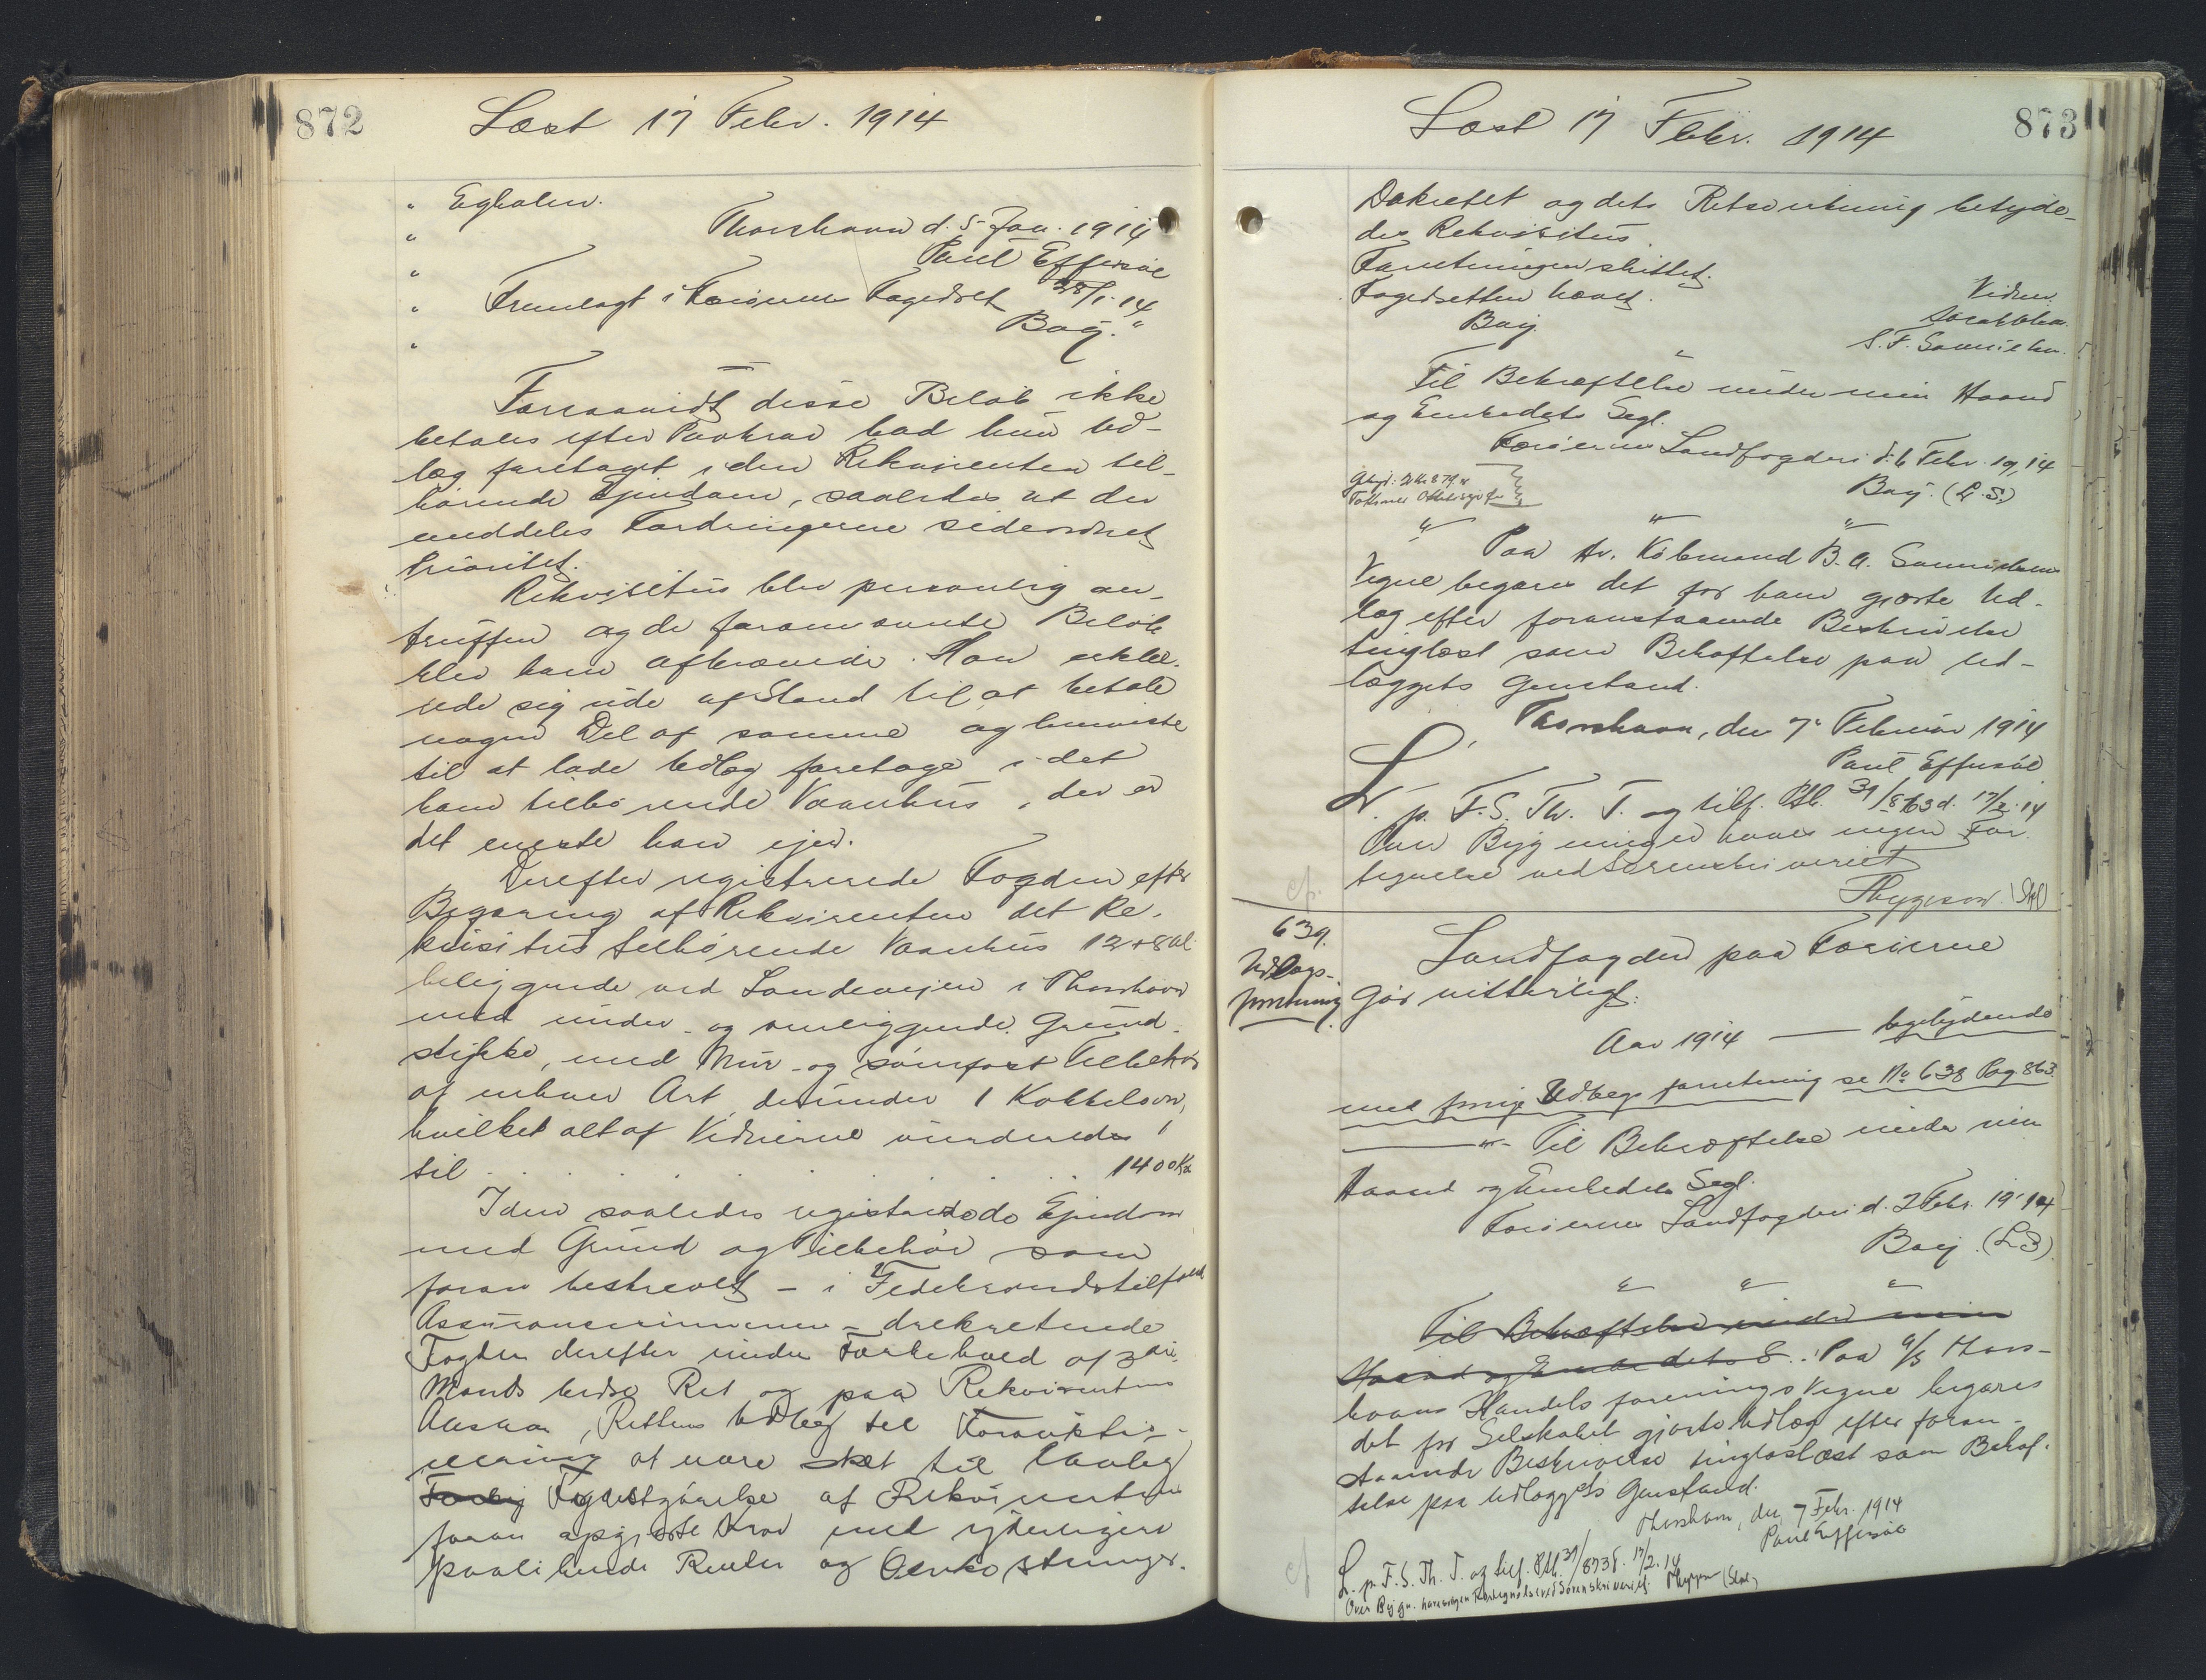 872
Læst 17 Febr. 1914
" Egholm.
" Thorshavn d. 5 Jan. 1914
" Paul Effersøe
" Fremlagt i Færøernes Fogedret 28/1 14
" Bay. "
Forsaavidt disse Beløb ikke
betales efter Paakrav bad hun Ud-
læg foretaget i den Rekvirenten til-
hørende Ejendom, saaledes at der
meddeles Fordringerne sideordnet
Prioritet.
Rekvisitus blev personlig an-
truffen og de forannævnte Beløb
blev ham afkrævede. Han erklæ-
rede sig ude af Stand til at betale
nogen Del af samme og henviste
til at lade Udlæg foretage i det
ham tilhørende Vaanhus, der er
det eneste han ejer.
Derefter registrerede Fogden efter
Begæring af Rekvirenten det Re-
kvisitus tilhørende Vaanhus 12 x 8 Al
beliggende ved Landevejen i Thorshavn
med under- og omliggende Grund-
stykke, med Mur- og sømfast Tilbehør
af enhver Art derunder 1 Kakkelovn,
hvilket alt af Vidnerne vurderedes
til . . . . . . 1400 Kr
I den saaledes registrerede Ejendom
med Grund og Tilbehør som
foran beskrevet – i Ildebrandstilfælde
Assurancesummen – dekreterede
Fogden derefter under Forbehold af 3die
Mands bedre Ret og paa Rekvirentens
Ansvar, Rettens Udlæg til Forauktio-
nering at være sket til lovlig
Fyldestgørelse af Rekvirentens
foran opgjorte Krav med yderligere
paaløbende Renter og Omkostninger.
Læst 17 Febr. 1914
873
Dekretet og dets Retsvirkning betyde-
des Rekvisitus.
Forretningen sluttet.
Fogedretten hævet.
Bay.
Vidner
Jacobsen.
S. F. Samuelsen.
"
Til Bekræftelse under min Haand
og Embedets Segl.
Færøernes Landfogderi d. 6 Febr. 1914
Bay. (L. S.)
" " "
Paa Hr. Købmand B. A. Samuelsens
Vegne begæres det for ham gjorte Ud-
læg efter foranstaaende Beskrivelse
tinglæst som Behæftelse paa Ud-
læggets Genstand.
Thorshavn, den 7 Februar 1914
Paul Effersøe
L. p. F. S. Th. T. og tilf. Ptb. 31/863 d. 17/2 14
Over Bygningen haves ingen For-
tegnelse ved Sorenskriveriet
Thygesen (Skl)
cf.
639.
Udlægs-
forretning.
Landfogden paa Færøerne
Gør vitterligt:
Aar 1914 — ligelydende
med forrige Udlægsforretning se No 638 Pag. 863.
— " – Til Bekræftelse under min
Haand og Embedets Segl.
Færøernes Landfogderi d. 2 Febr. 1914
Bay. (L S)
" " "
Til Bekræftelse under min
Haand og Embedets S.: Paa A/S Thors-
havns Handelsforenings Vegne begæres
det for Selskabet gjorte Udlæg efter foran-
staaende Beskrivelse tinglæst som Behæf-
telse paa Udlæggets Genstand.
Thorshavn, den 7 Febr. 1914
Paul Effersøe
cf
L. p. F. S. Th. T. og tilf. Ptb. 31/873 d. 17/2. 14
Over Bygn. haves ingen Fortegnelse ved Sorenskriveriet. Thygesen (Skl)